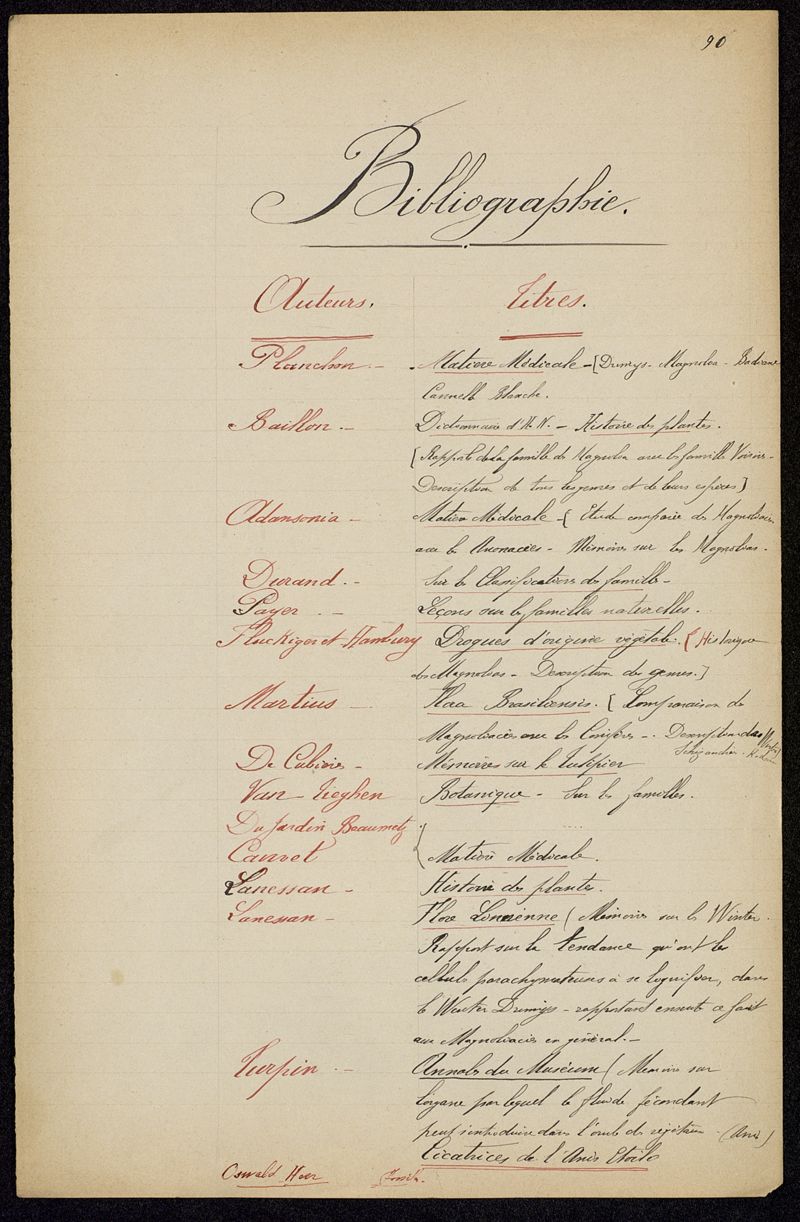 90
Bibliographie.
Auteurs. Titres.
Planchon. - Matière Médicale - [Drimys. Magnolia - Badiane
Cannelle Blanche.
Baillon. - Dictionnaire d'H.N. - Histoire des plantes.
[Rapports de la famille des Magnolia avec les familles Voisines -
Description de tous les genres et de leurs espèces]
Adansonia - Matière Médicale - [Etude comparée des Magnoliacées
avec les Anonacées - Mémoires sur les Magnolias -
Durand. - Sur les Classifications des familles -
Payer - Leçons sur les familles naturelles.
Fluckiger et Hambury Drogues d'origine végétale. [Historique
des Magnolias - Description des genres.]
Martius - Flora Brasiliensis. [Comparaison des
Magnoliacées avec les Conifères - Description des
Schizandrées
De Cubières - Mémoires sur le Tulipier
Van-Tieghen Botanique - Sur les familles.
Dujardin Beaumetz
Cauvet Matière Médicale.
Lanessan - Histoire des plantes.
Lanessan - Flore (Mémoires sur les Winter.
Rapport sur la tendance qu'ont les
cellules parachymateuses à se lignifier, dans
le Winter Drimys - rapportant ensuite ce fait
aux Magnoliacées en général. -
Turpin - Annales du Muséum (Memoire sur
l'organe par lequel le fluide fécondant
peut s'introduire dans l'ovule des végétaux - (Anis)
Cicatrices de l'Anis Etoilé
Oswald Heer Fossiles.